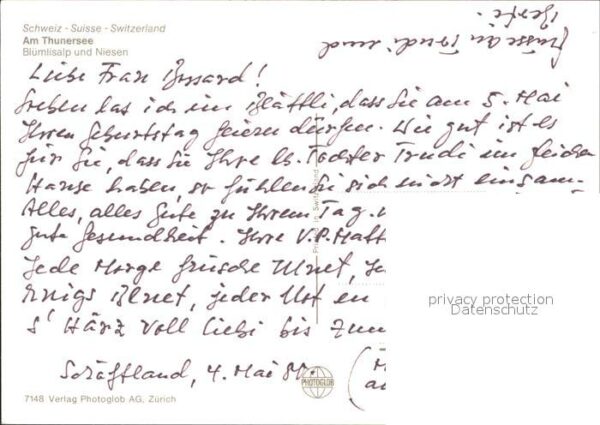 Schweiz - Suisse - Switzerland
Am Thunersee
Blümlisalp und Niesen
Grüsse an Trudi und
Liebe Frau Bossard!
Soeben las ich im Blättli, dass Sie am 5. Mai
Ihren Geburtstag feiern dürfen. Wie gut ist es
für Sie, dass Sie Ihre lb. Tochter Trudi im gleichen
Hause haben, so fühlen Sie sich nicht einsam.
Alles, alles Gute zu Ihrem Tag.
gute Gesundheit. Ihre V.P. Matt
Jede Morge früsche Muet,
Bluet, jeder Ust en
S' Härz voll Liebi bis zum
Schöftland, 4. Mai
Printed in Switzerland
privacy protection
Datenschutz
PHOTOGLOB
7148 Verlag Photoglob AG, Zürich